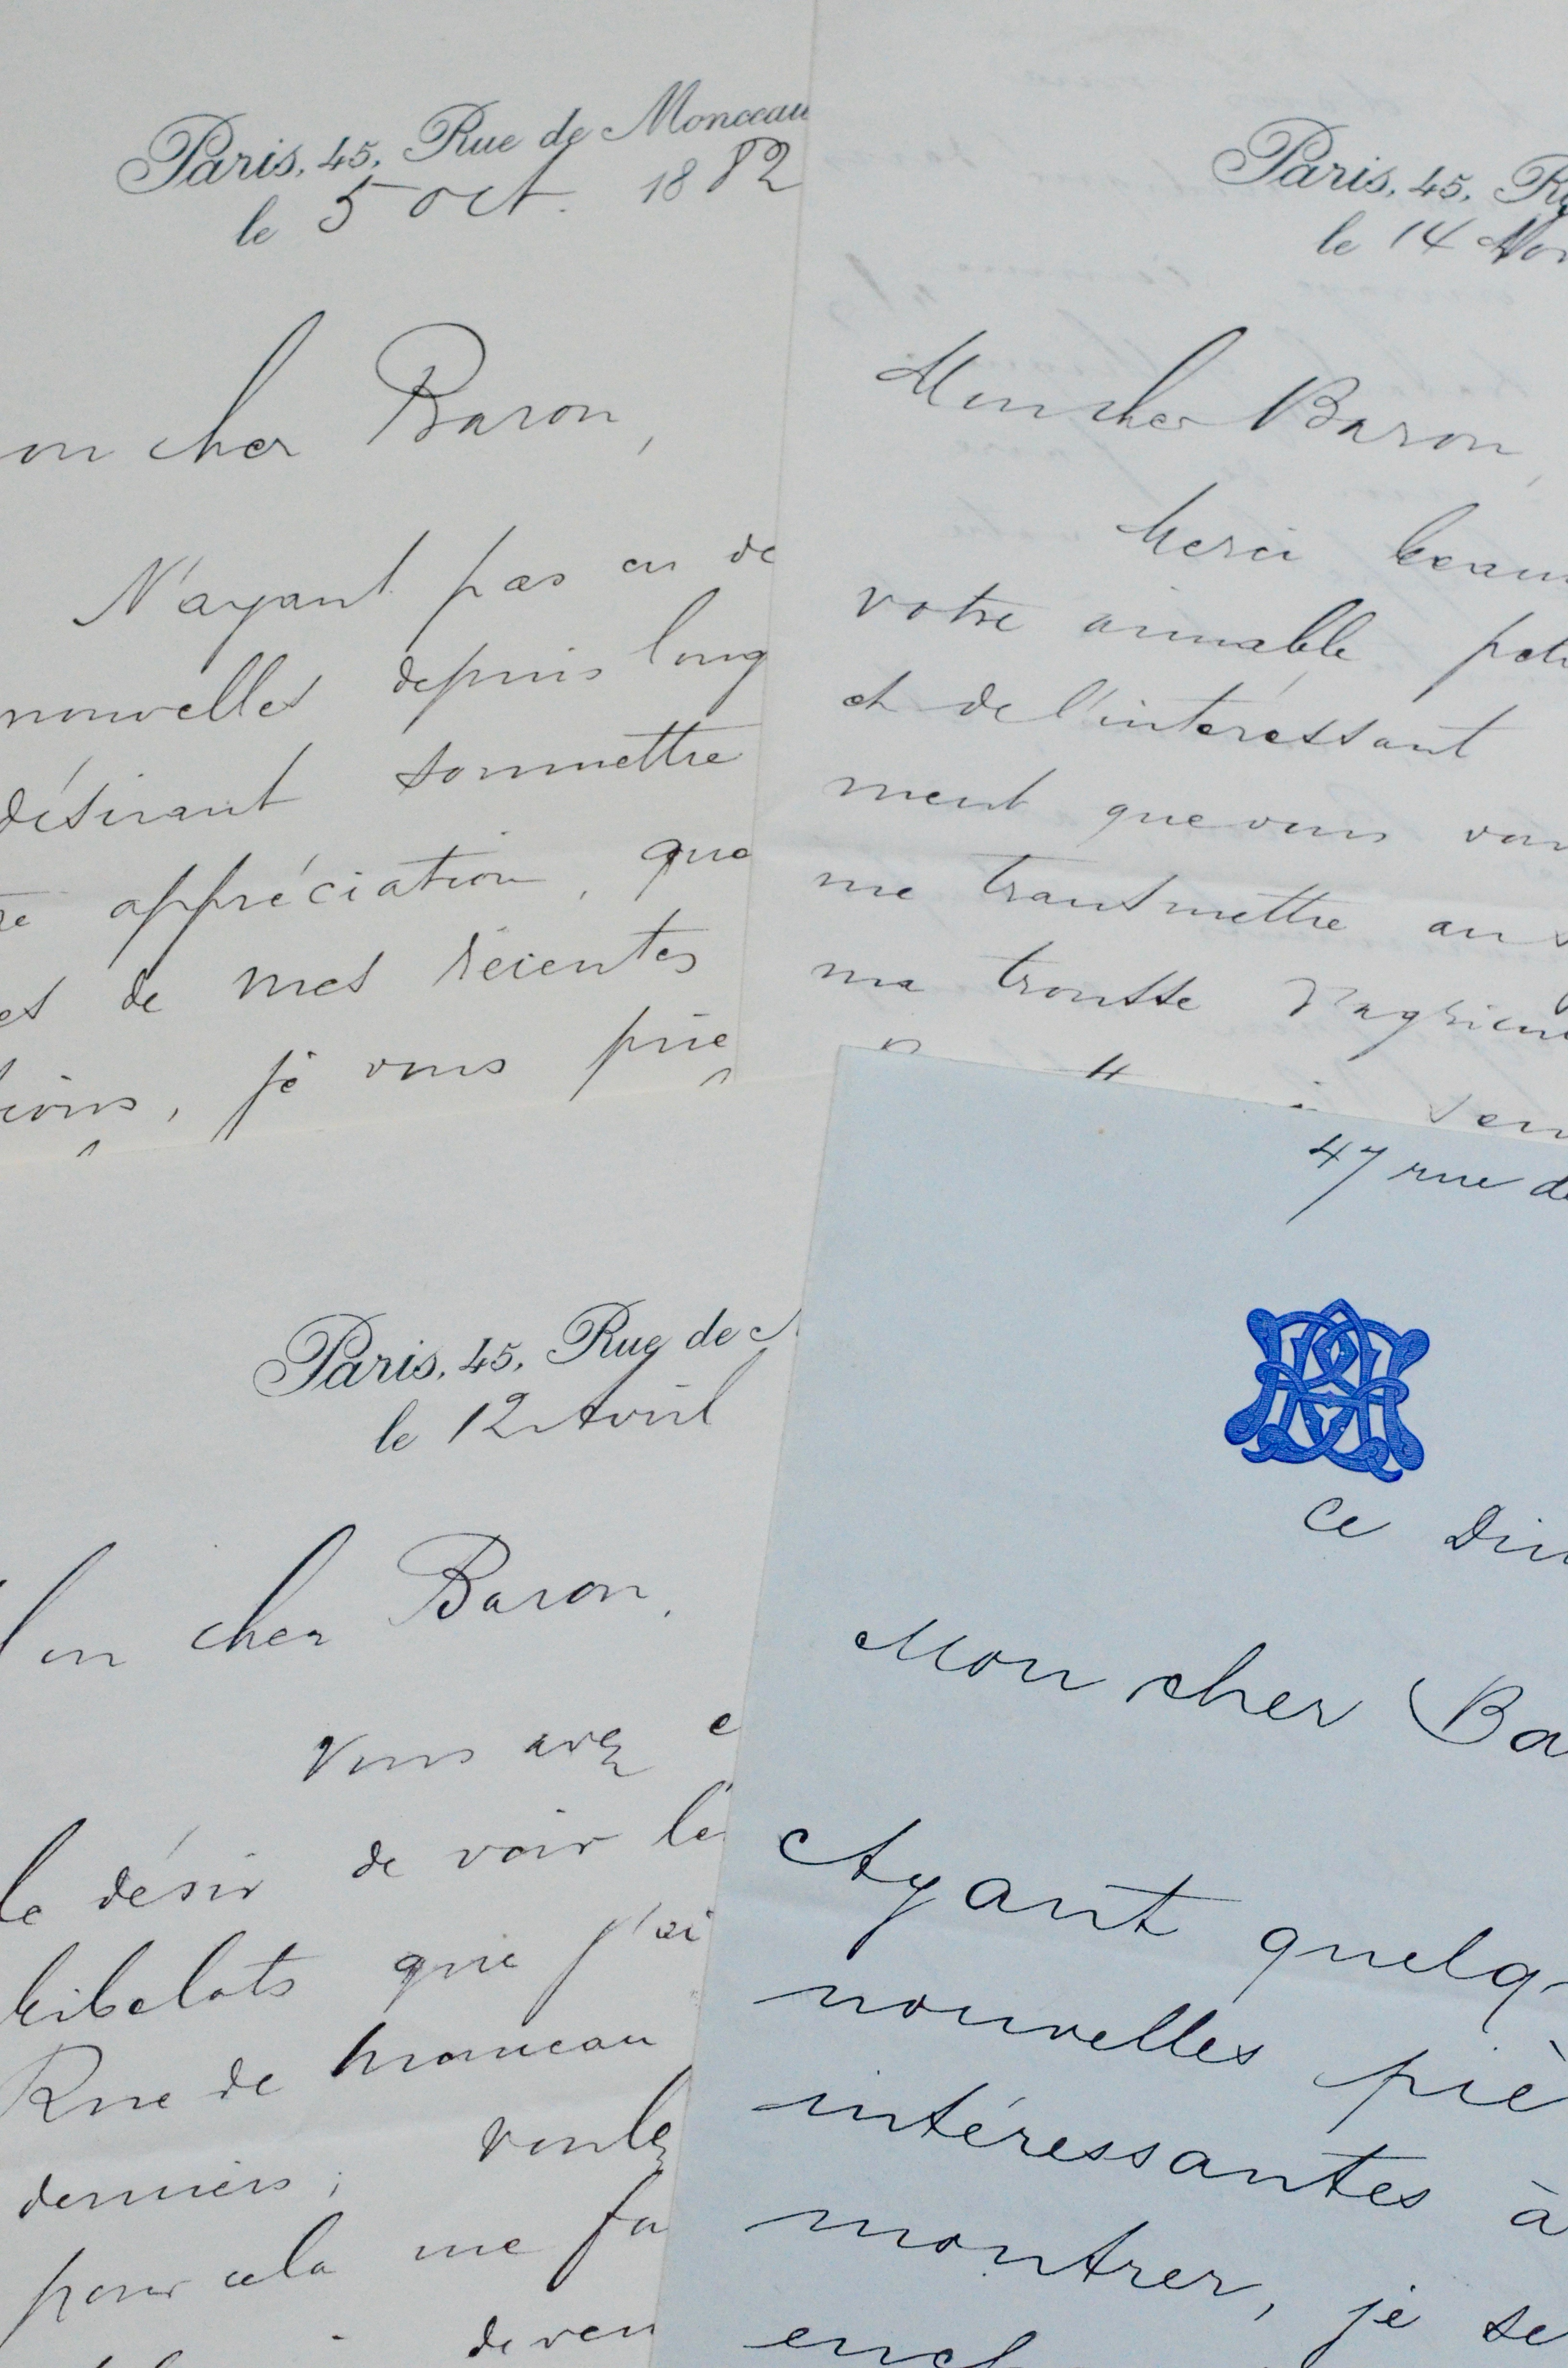 Paris, 45, Rue de Monceau
le 5 oct. 1882
on cher Baron,
N'ayant pas eu de
nouvelles depuis long
désirant soumettre
appréciation, que
de mes récentes
je vous prie
Paris, 45, Ru
le 14 Nov
Mon cher Baron,
Merci beauc
votre aimable peti
et de l'intéressant
ment que vous vou
me transmettre au s
ma trousse d'agricul
Paris, 45, Rue de M
le 12 Avril
Mon cher Baron,
Vous avez e
le désir de voir le
bibelots que j'ai
Rue de Monceau
derniers; voulez
pour cela me fa
de ven
47 rue de
ce Dim
Mon cher Ba
Ayant quelq
nouvelles piè
intéressantes à
montrer, je se